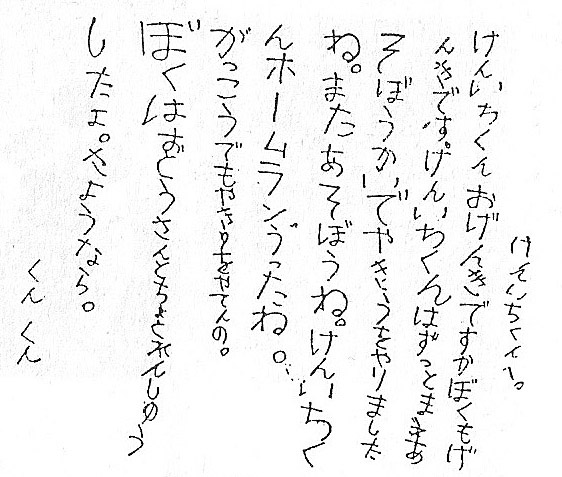 けんいちくんへ。
けんいちくんおげんきですかぼくもげ
んきです。けんいちくんはずっとまえあ
そぼうかいでやきゅうをやりました
ね。またあそぼうね。けんいちく
んホームランうったね。
がっこうでもやきゅうをやてんの。
ぼくはおとうさんとちょとれんしゅう
したよ。さようなら。
くんくん